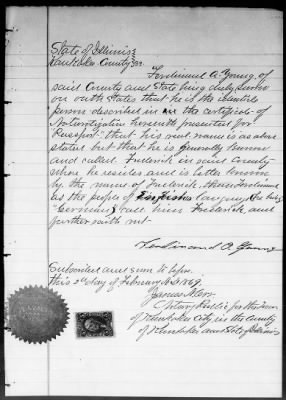 State of Illinois
Kankakee County ss.
Ferdinand A. Young, of
said County and State being duly sworn
on oath States that he is the identical
person described in the certificate of
Naturalization herewith presented for
"Passport" that his real name is as above
stated but that he is generally known
and called Frederick in said County
where he resides and is better known
by the name of Frederick, than Ferdinand
as the people of language
German) call him Frederick, and
further saith not
Ferdinand A. Young
Subscribed and sworn to before
this 2d day of February A.D. 1869.
James
Notary Public for the Town
of Kankakee City, in the County
of Kankakee and State of Illinois